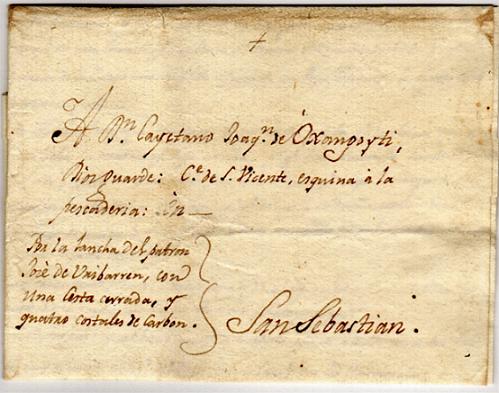 +
A Dn. Cayetano Joaqn. de Oxangoyti,
Dios guarde: Ce. de S. Vicente, esquina à la
pescaderia: En
Por la lancha del patron
Josè de Uaibarren, con
una Cesta cerrada, y
quatro costales de Carbon.
San Sebastian.